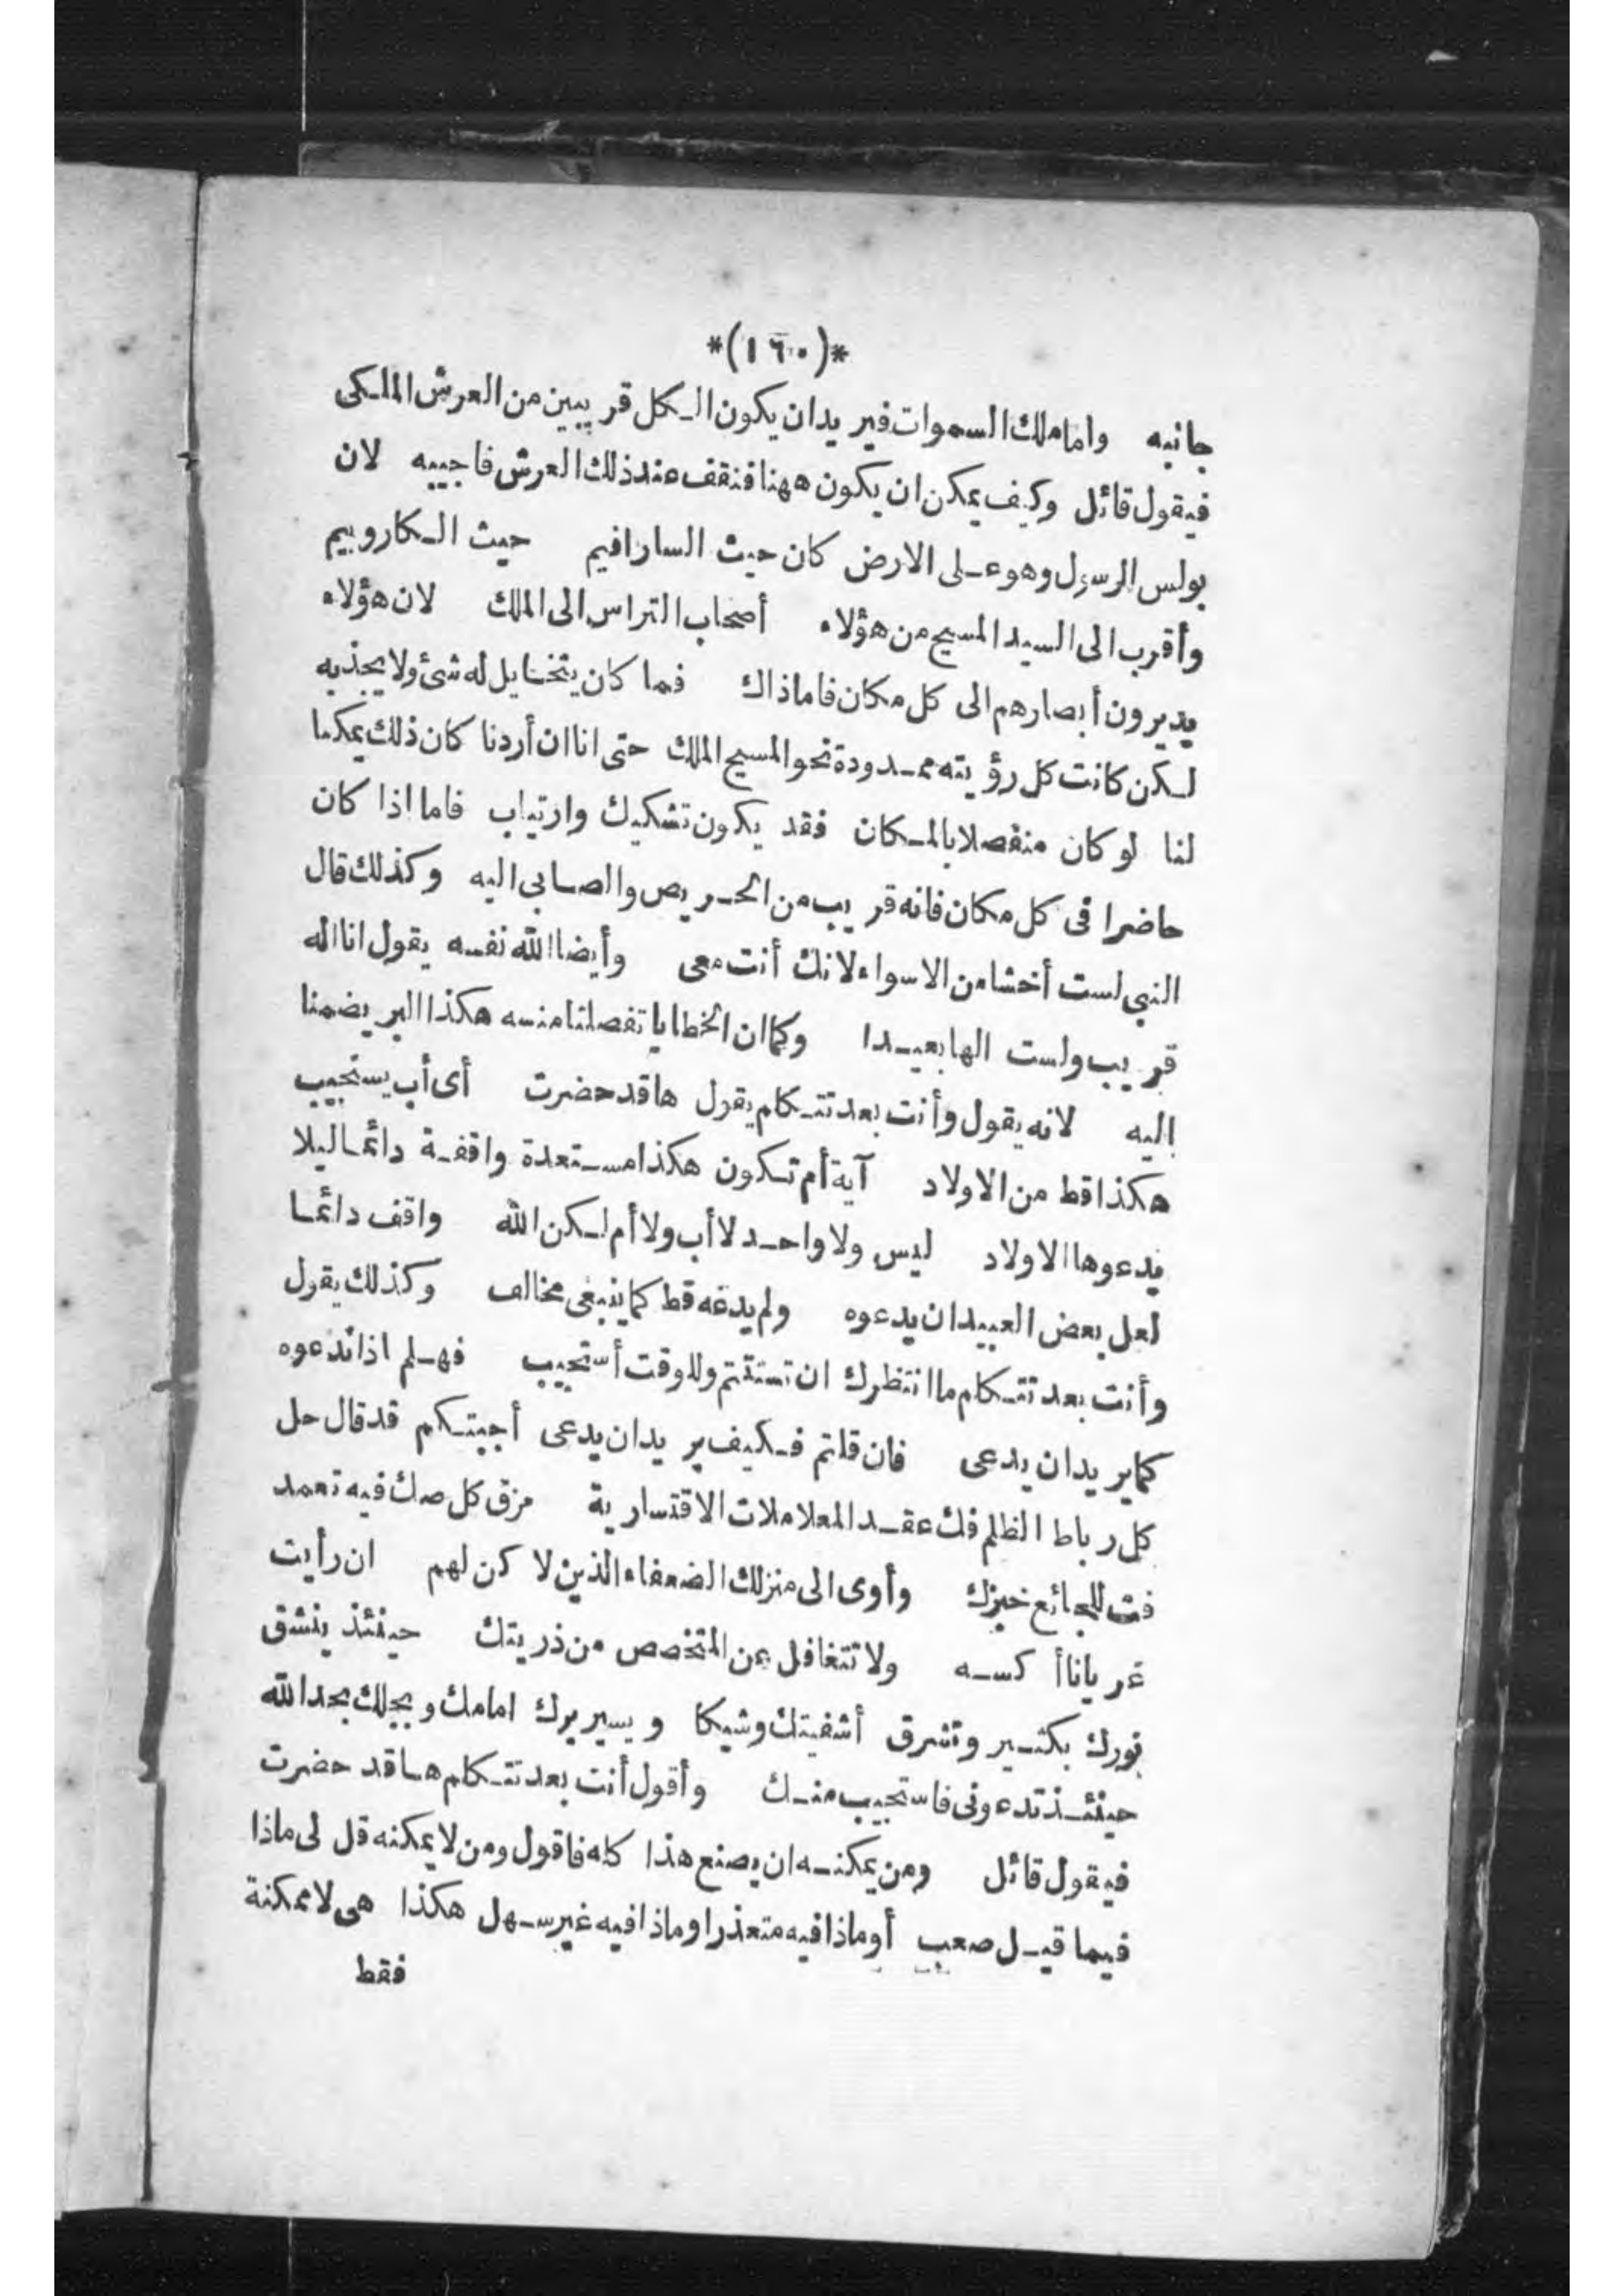 *(١٦٠)*
جانبه واما ملك السموات فيريد ان يكون الكل قريبين من العرش الملكى
فيقول قائل وكيف يمكن ان يكون ههنا فنقف عند ذلك العرش فاجيبه لان
بولس الرسول وهو على الارض كان حيث السارافيم حيث الكاروبيم
وأقرب الى السيد المسيح من هؤلاء أصحاب التراس الى الملك لان هؤلاء
يديرون أبصارهم الى كل مكان فاما ذاك فما كان يتخايل له شئ ولا يجذبه
لكن كانت كل رؤيته ممدودة نحو المسيح الملك حتى انا ان أردنا كان ذلك يمكنا
لنا لو كان منفصلا بالمكان فقد يكون تشكيك وارتياب فاما اذا كان
حاضرا فى كل مكان فانه قريب من الحريص والصابى اليه وكذلك قال
النبى لست أخشا من الاسواء لانك أنت معى وأيضا الله نفسه يقول انا اله
قريب ولست الها بعيدا وكما ان الخطايا تفصلنا منه هكذا البر يضمنا
اليه لانه يقول وأنت بعد تتكلم يقول ها قد حضرت أى أب يستجيب
هكذا قط من الاولاد آية أم تكون هكذا مستعدة واقفة دائما ليلا
يدعوها الاولاد ليس ولا واحد لا أب ولا أم لكن الله واقف دائما
لعل بعض العبيد ان يدعوه ولم يدعه قط كما ينبغى مخالف وكذلك يقول
وأنت بعد تتكلم ما انتظرك ان تستتم وللوقت أستجيب فهلم اذا ندعوه
كما يريد ان يدعى فان قلتم فكيف يريد ان يدعى أجبتكم قد قال حل
كل رباط الظلم فك عقد المعلاملات الاقتسارية مزق كل صك فيه تعمد
فت للجائع خبزك وأوى الى منزلك الضعفاء الذين لا كن لهم ان رأيت
عريانا أكسه ولا تتغافل عن المتخصص من ذريتك حينئذ ينشق
نورك بكتير وتشرق أشفيتك وشيكا ويسير برك امامك ويجللك بمجد الله
حينئذ تدعونى فاستجيب منك وأقول أنت بعد تتكلم ها قد حضرت
فيقول قائل ومن يمكنه ان يصنع هذا كله فاقول ومن لا يمكنه قل لى ماذا
فيما قيل صعب أو ماذا فيه متعذرا وماذا فيه غير سهل هكذا هى لا ممكنة
فقط